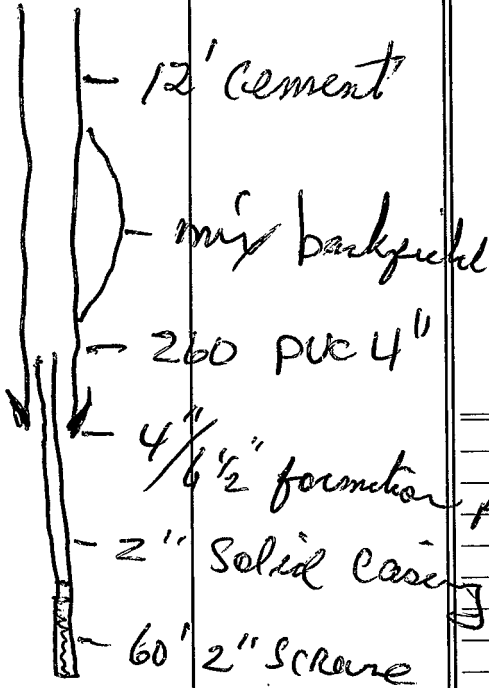 12' cement
mix backfield
260 PVC 4"
4"/6 1/2" formation p
2" Solid Casing
60' 2" Screane